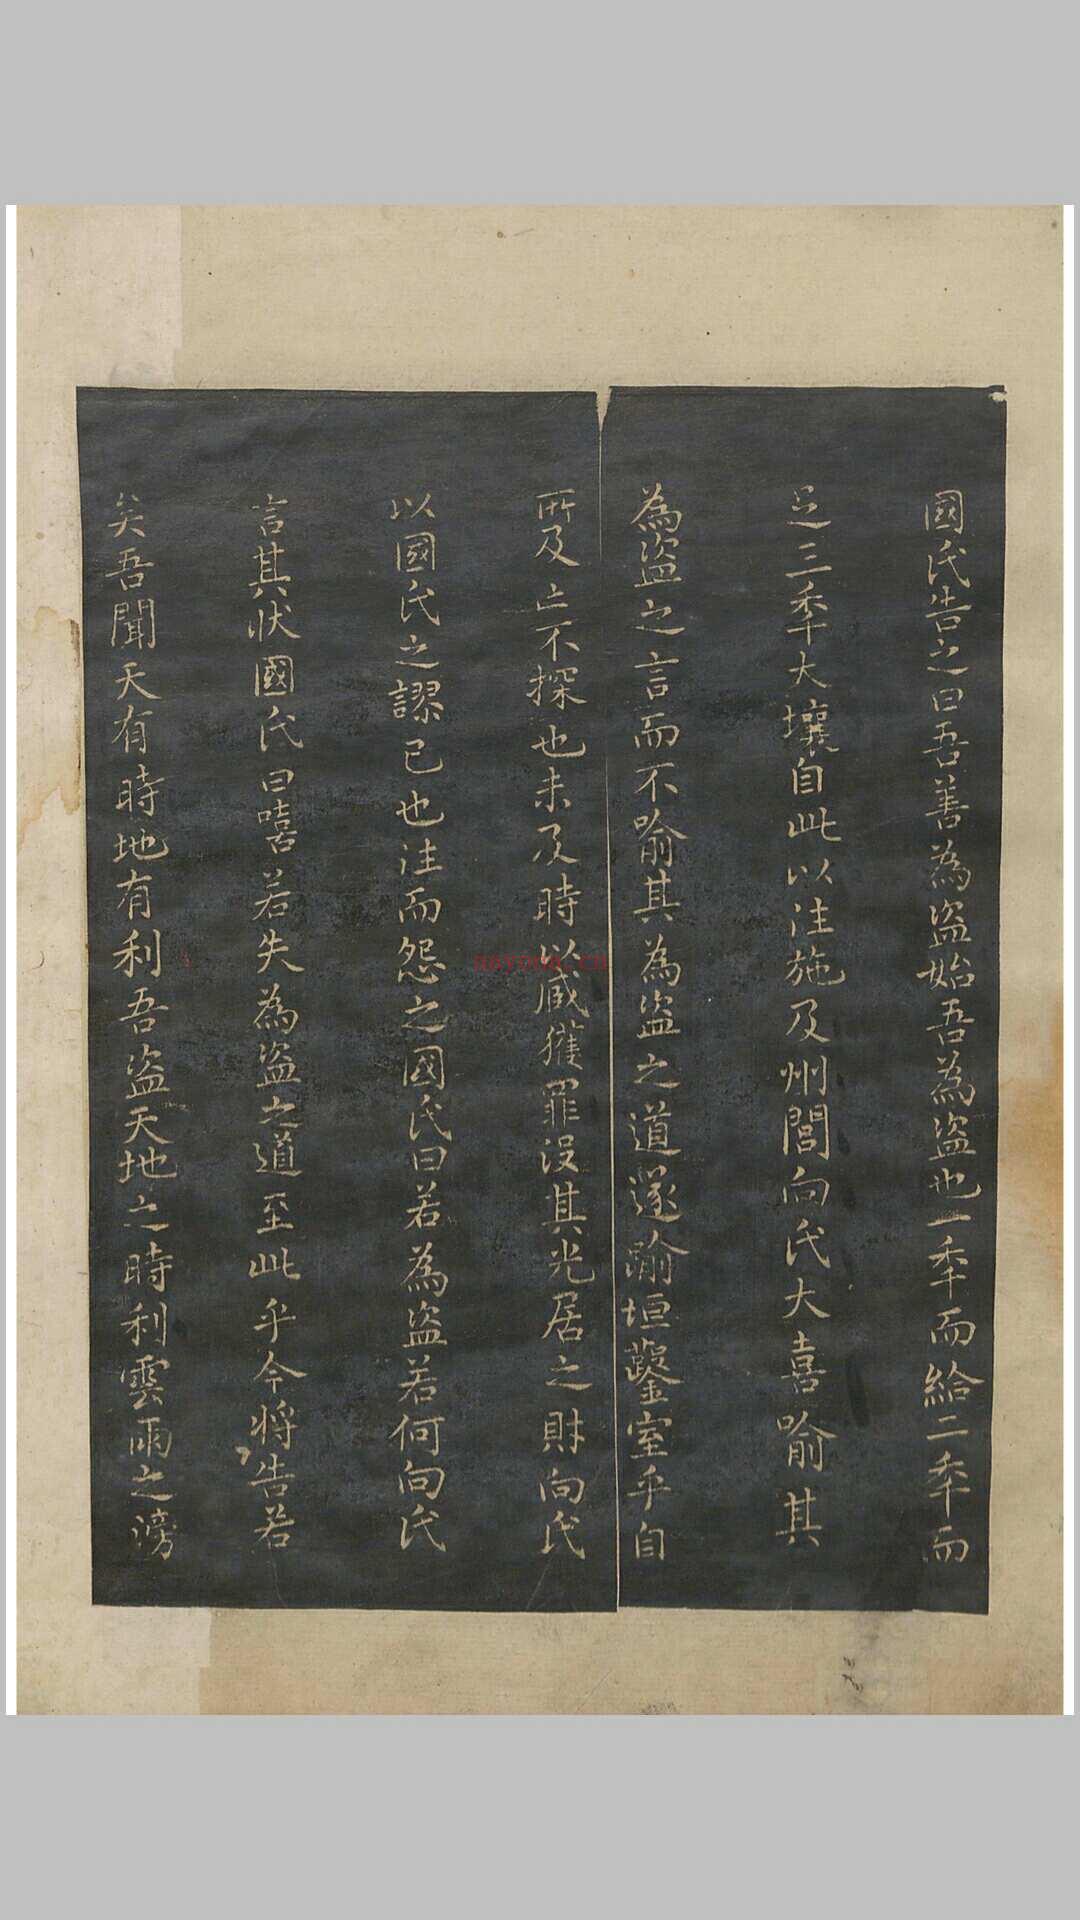 國氏告之曰吾善為盜始吾為盜也一秊而給二秊而
足三秊大壤自此以泩施及州閭向氏大喜喻其
為盜之言而不喻其為盜之道遂踰垣鑿室乎自
所及亡不探也未及時以臧獲罪没其光居之財向氏
以國氏之謬已也泩而怨之國氏曰若為盜若何向氏
言其狀國氏曰嘻若失為盜之道至此乎今將告若
矣吾聞天有時地有利吾盜天地之時利雲雨之滂